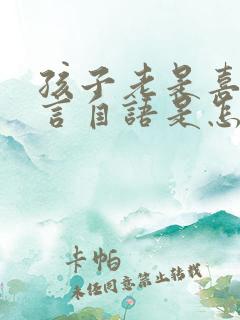 孩子老是喜
言自語是怎
卡帕
未经同意禁止转载